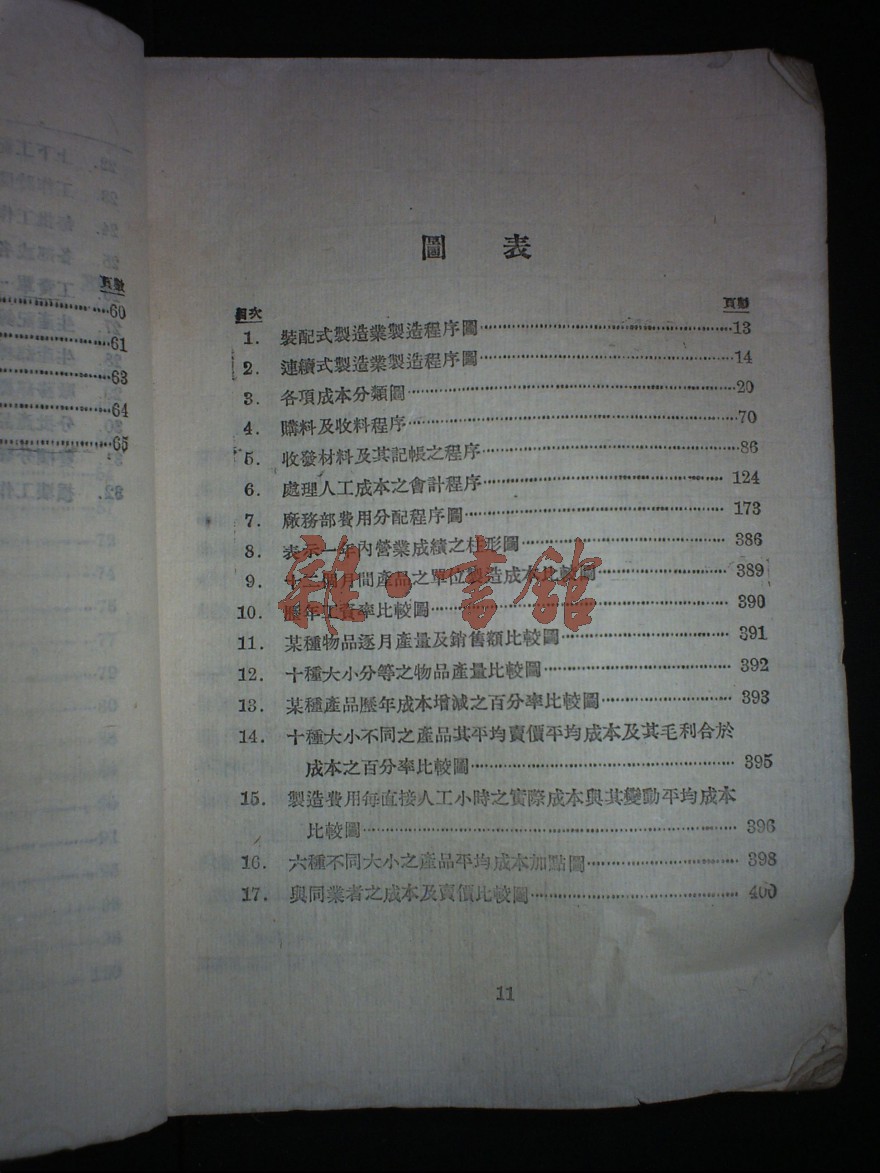 頁數
60
61
63
64
65
圖 表
圖次 頁數
1. 裝配式製造業製造程序圖 13
2. 連續式製造業製造程序圖 14
3. 各項成本分類圖 20
4. 購料及收料程序 70
5. 收發材料及其記帳之程序 86
6. 處理人工成本之會計程序 124
7. 廠務部費用分配程序圖 173
8. 表示一年內營業成績之柱形圖 386
9. 十二個月間產品之單位製造成本比較圖 389
10. 歷年工資率比較圖 390
11. 某種物品逐月產量及銷售額比較圖 391
12. 十種大小分等之物品產量比較圖 392
13. 某種產品歷年成本增減之百分率比較圖 393
14. 十種大小不同之產品其平均賣價平均成本及其毛利合於
成本之百分率比較圖 395
15. 製造費用每直接人工小時之實際成本與其變動平均成本
比較圖 396
16. 六種不同大小之產品平均成本加點圖 398
17. 與同業者之成本及賣價比較圖 400
雜·書館
11